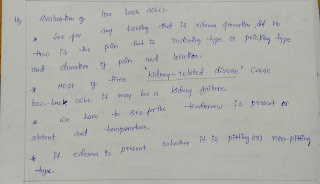 B) Evaluation of low back ache:-
* See for any swelling that is edema formation if no
How is the pain that is radiating type or pricking type
and duration of pain and location.
* Most of time "kidney-related disease" cause
low-back ache. It may be a kidney failure.
* We have to see for the tenderness is present or
absent and temperature.
* If edema is present whether it is pitting or non-pitting
type.